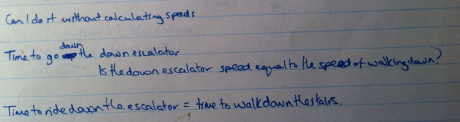 Can I do it without calculating speeds
down
Time to go the down escalator
Is the down escalator speed equal to the speed of walking down?
Time to ride down the escalator = time to walk down the stairs.